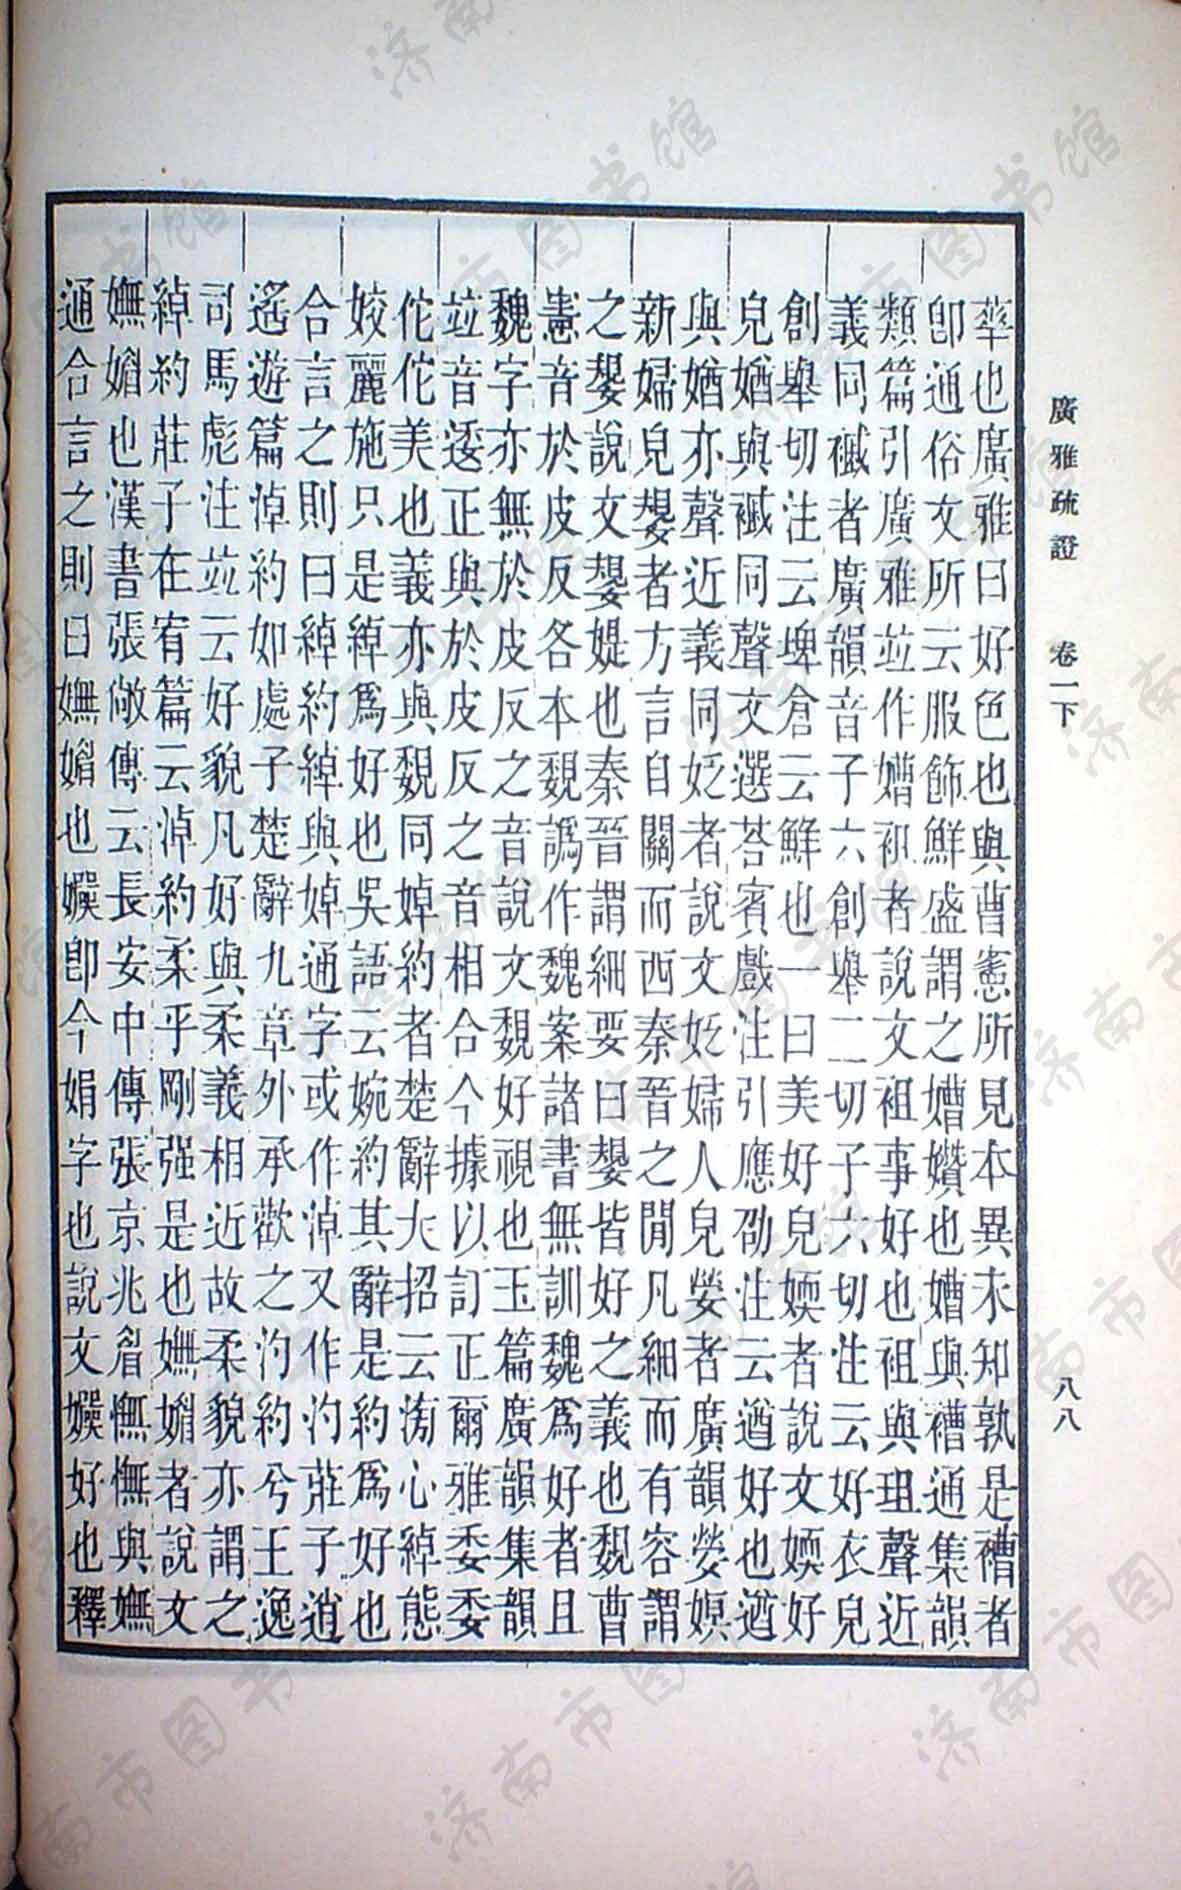 廣雅疏證　卷一下　八八
華也廣雅曰好色也與曹憲所見本異未知孰是𧝬者
卽通俗文所云服飾鮮盛謂之㜖孏也㜖與𧝬通集韻
類篇引廣雅竝作㜖袓者說文袓事好也袓與珇聲近
義同襳者廣韻音子六創舉二切子六切注云好衣皃
創舉切注云埤倉云鮮也一曰美好皃媆者說文媆好
皃媨與襳同聲文選荅賓戲注引應劭注云遒好也遒
與媨亦聲近義同妶者說文妶婦人皃妟者廣韻嫈嫇
新婦皃嫢者方言自關而西秦晉之閒凡細而有容謂
之嫢說文嫢媞也秦晉謂細要曰嫢皆好之義也魏曹
憲音於皮反各本䰟譌作魏案諸書無訓魏爲好者且
魏字亦無於皮反之音說文覣好視也玉篇廣韻集韻
竝音逶正與於皮反之音相合今據以訂正爾雅委委
佗佗美也義亦與覣同婥約者楚辭大招云滂心綽態
姣麗施只是綽爲好也吳語云婉約其辭是約爲好也
合言之則曰綽約綽與婥通字或作淖又作汋莊子逍
遙遊篇淖約如處子楚辭九章外承歡之汋約兮王逸
司馬彪注竝云好貌凡好與柔義相近故柔貌亦謂之
綽約莊子在宥篇云淖約柔乎剛强是也嫵媚者說文
嫵媚也漢書張敞傳云長安中傳張京兆眉憮憮與嫵
通合言之則曰嫵媚也㜲卽今娟字也說文㜲好也釋